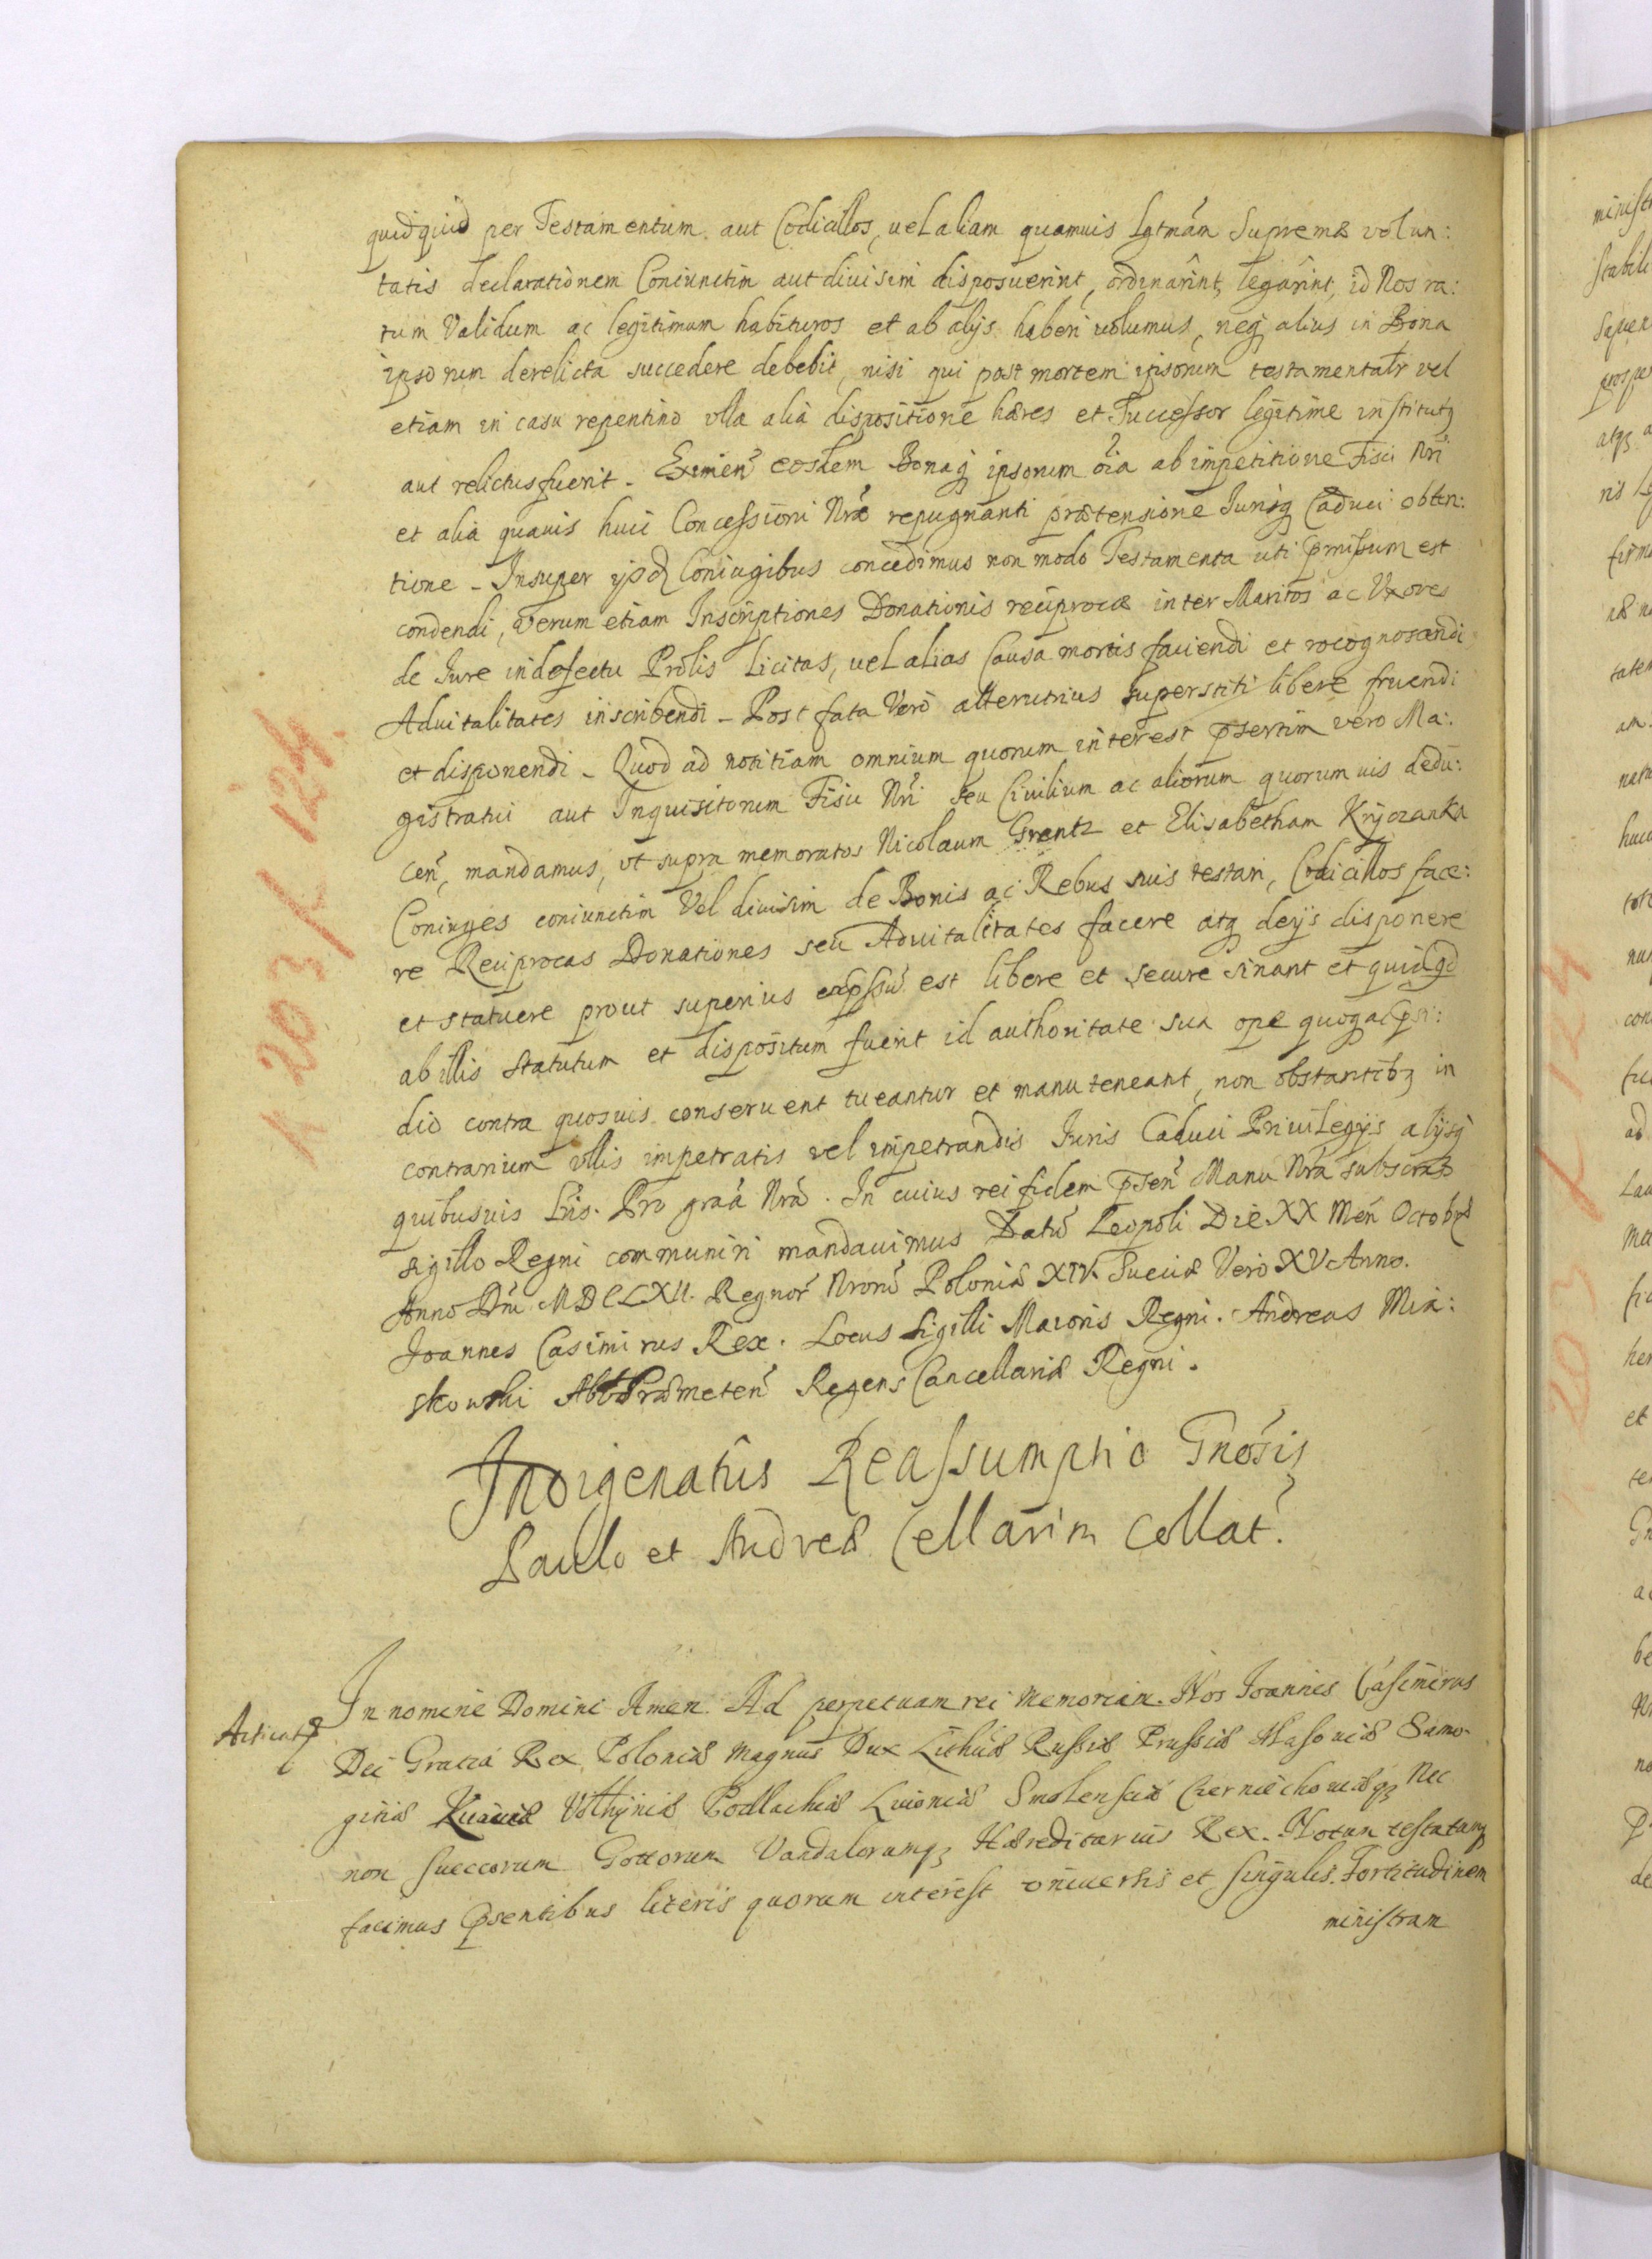 quidquid per Testamentum aut Codicillos, vel aliam quamuis Lgtmám Supremæ volun:
tatis declarationem Coniunctim aut diuisim disposuerint, ordinarint, legarint, id Nos ra:
tum Validum ac legitimum habituros et ab alijs haberi volumus, neq alius in Bona
ipsorum derelicta succedere debebit, nisi qui post mortem ipsorum testamentalr vel
etiam in casu repentino vlla alia dispositione hæres et Successor legitime institutq
aut relictus fuerit. Eximen eosdem Bonaq ipsorum oia ab impetitione Fisci Nri
et alia quauis huic Concessioni Nræ repugnanti prætensione Jurisq Caduci obten:
tione. Insuper ijsd Coniugibus concedimus non modo Testamenta uti pmissum est
condendi, verum etiam Inscriptiones Donationis reciprocæ inter Maritos ac Vxores
de Jure in defectu Prolis licitas, vel alias Causa mortis faciendi et recognoscendi
Aduitalitates inscribendi. Post fata Vero alterutrius superstiti libere fruendi
et disponendi. Quod ad notitiam omnium quorum interest psertim vero Ma:
gistratui aut Inquisitorum Fisci Nri seu Ciuilium ac aliorum quorumuis dedu:
cen, mandamus, vt supra memoratos Nicolaum Grentz et Elisabetham Kryczanka
Coniuges coniunctim Vel diuisim de Bonis ac Rebus suis testari, Codicillos face:
re Reciprocas Donationes seu Aduitalitates facere atq de ijs disponere
et statuere prout superius expssu est libere et secure sinant et quidqd
ab illis statutum et dispositum fuerit id authoritate sua ope quoq ac psi:
dio contra quosuis conseruent tueantur et manuteneant, non obstantibq in
contrarium vllis impetratis vel impetrandis Juris Caduci Priuilegijs alijsq
quibusuis Lris. Pro graa Nra. In cuius rei fidem psen Manu Nra subscrip
sigillo Regni communiri mandauimus Datu Leopoli Die XX Men Octobr
Anno Dni MDCLXII. Regnor Nroru Poloniæ XIV. Sueciæ Vero XV Anno.
Joannes Casimirus Rex. Locus Sigilli Maioris Regni. Andreas Mia:
skowski Abbs Præmeten Regens Cancellariæ Regni.
Indigenatus Reassumptio Gnosis
Paulo et Andreæ Cellarim Collat.
In nomine Domini Amen. Ad perpetuam rei memoriam. Nos Joannes Casimirus
Dei Gratia Rex Poloniæ Magnus Dux Lithuæ Russiæ Prussiæ Masoviæ Samo-
gitiæ Kijoviæ Volhyniæ Podlachiæ Livoniæ Smolensciæ Czerniechoviæq Nec
non Sueccorum Gottorum Vandalorumq Hæreditarius Rex. Notum testatumq
facimus psentibus literis quorum interest universis et singulis. Fortitudinem
ministram
K 203 K 124.